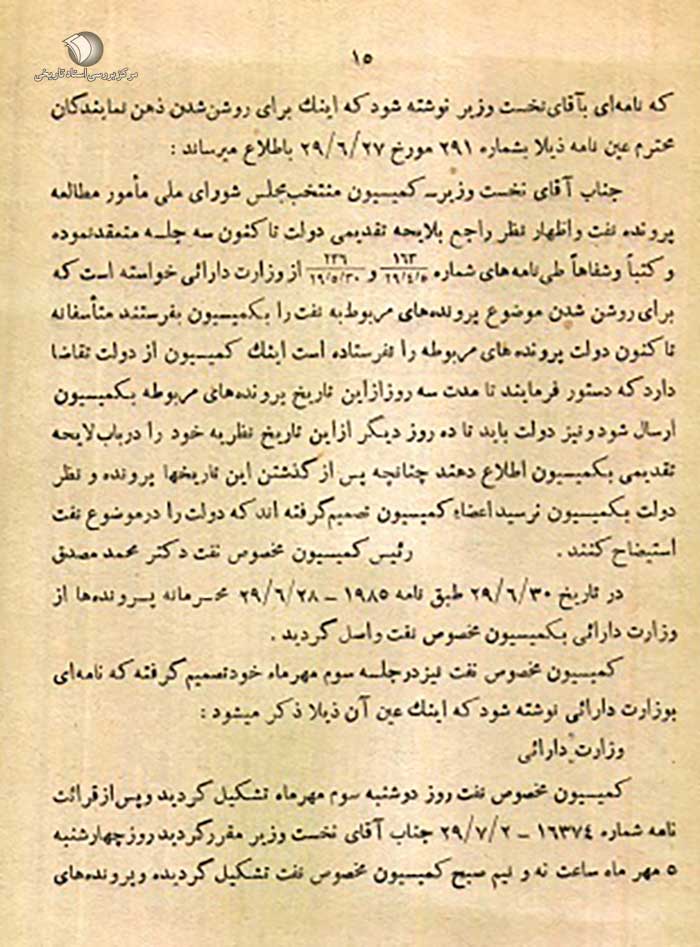 مرکز بررسی اسناد تاریخی
۱۵
که نامه‌ای بآقای نخست وزیر نوشته شود که اینك برای روشن‌شدن ذهن نمایندگان
محترم عین نامه ذیلا بشماره ۲۹۱ مورخ ۲۹/۶/۲۷ باطلاع میرساند :
جناب آقای نخست وزیرـ کمیسیون منتخب‌مجلس شورای ملی مأمور مطالعه
پرونده نفت واظهار نظر راجع بلایحه تقدیمی دولت تاکنون سه جلسه منعقدنموده
و کتباً وشفاهاً طی‌نامه‌های شماره ۱۶۳ ۲۹/۴/۵ و ۲۳۶ ۲۹/۵/۳۰ از وزارت دارائی خواسته است که
برای روشن شدن موضوع پرونده‌های مربوط‌به نفت را بکمیسیون بفرستند متأسفانه
تاکنون دولت پرونده های مربوطه را نفرستاده است اینك کمیسیون از دولت تقاضا
دارد که دستور فرمایند تا مدت سه روزازاین تاریخ پرونده‌های مربوطه بکمیسیون
ارسال شود و نیز دولت باید تا ده روز دیگر ازاین تاریخ نظریه خود را درباب لایحه
تقدیمی بکمیسیون اطلاع دهند چنانچه پس از گذشتن این تاریخها پرونده و نظر
دولت بکمیسیون نرسید اعضاء کمیسیون تصمیم گرفته اند که دولت را درموضوع نفت
استیضاح کنند . رئیس کمیسیون مخصوص نفت دکتر محمد مصدق
در تاریخ ۲۹/۶/۳۰ طبق نامه ۱۹۸۵ ـ ۲۹/۶/۲۸ محـرمانه پـرونده‌ها از
وزارت دارائی بکمیسیون مخصوص نفت واصل گردید .
کمیسیون مخصوص نفت نیزدرجلسه سوم مهرماه خودتصمیم گرفته که نامه‌ای
بوزارت دارائی نوشته شود که اینك عین آن ذیلا ذکر میشود :
وزارت دارائی
کمیسیون مخصوص نفت روز دوشنبه سوم مهرماه تشکیل گردید و پس از قرائت
نامه شماره ۱۶۳۷۴ ـ ۲۹/۷/۲ جناب آقای نخست وزیر مقررگردید روزچهارشنبه
۵ مهر ماه ساعت نه و نیم صبح کمیسیون مخصوص نفت تشکیل گردیده و پرونده‌های